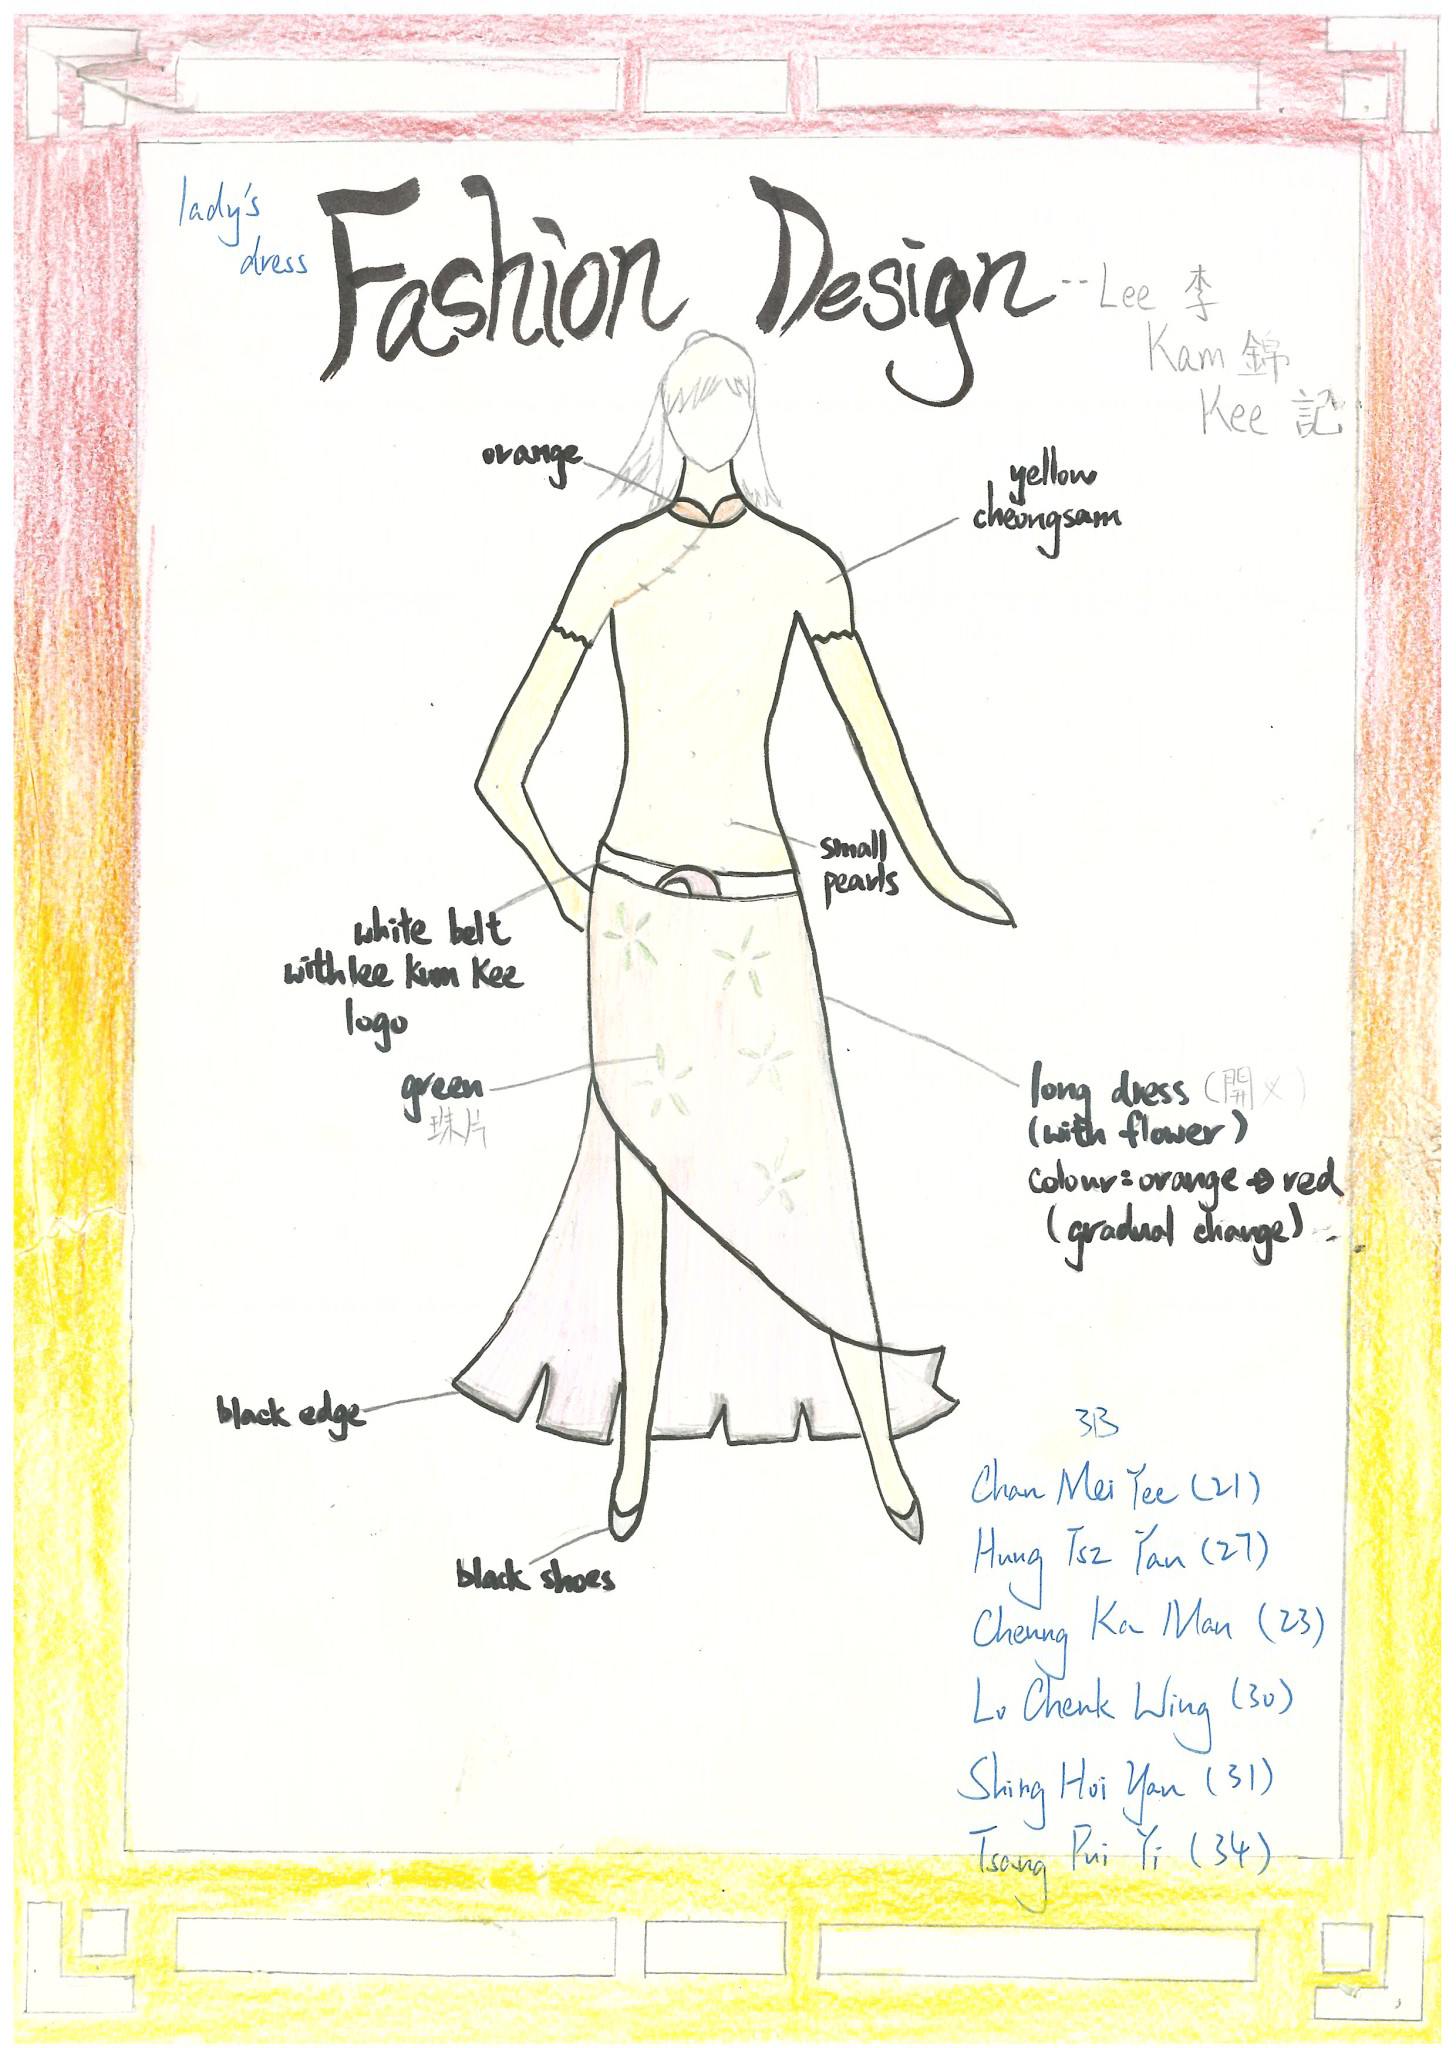 lady's
dress
Fashion Design
--Lee 李
Kam 錦
Kee 記
orange
yellow
cheongsam
small
pearls
white belt
with lee Kum Kee
logo
green
珠片
long dress (開叉)
(with flower)
colour: orange → red
(gradual change)
black edge
black shoes
3B
Chan Mei Yee (21)
Hung Tsz Yan (27)
Cheung Ka Man (23)
Lo Cheuk Wing (30)
Shing Hoi Yan (31)
Tsang Pui Yi (34)